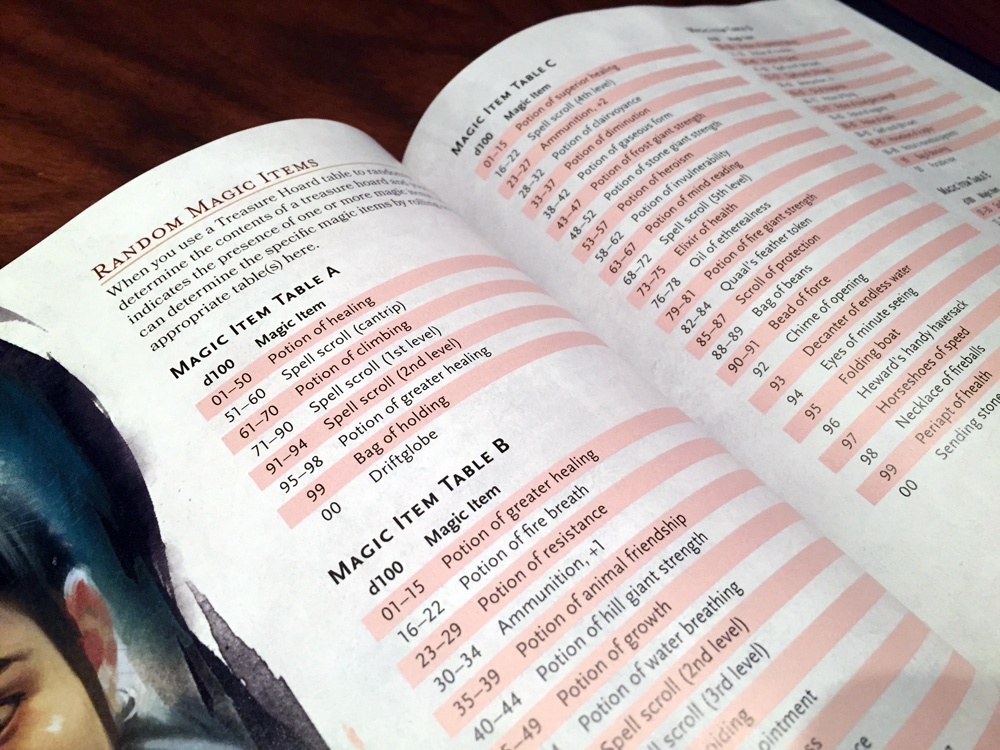 RANDOM MAGIC ITEMS
When you use a Treasure Hoard table to random
determine the contents of a treasure hoard and
indicates the presence of one or more magic
can determine the specific magic items by rolling
appropriate table(s) here.
MAGIC ITEM TABLE A
d100 Magic Item
01–50 Potion of healing
51–60 Spell scroll (cantrip)
61–70 Potion of climbing
71–90 Spell scroll (1st level)
91–94 Spell scroll (2nd level)
95–98 Potion of greater healing
99 Bag of holding
00 Driftglobe
MAGIC ITEM TABLE B
d100 Magic Item
01–15 Potion of greater healing
16–22 Potion of fire breath
23–29 Potion of resistance
30–34 Ammunition, +1
35–39 Potion of animal friendship
40–44 Potion of hill giant strength
5–49 Potion of growth
Potion of water breathing
Spell scroll (2nd level)
scroll (3rd level)
iding
ointment
ce
MAGIC ITEM TABLE C
d100 Magic Item
01–15 Potion of superior healing
16–22 Spell scroll (4th level)
23–27 Ammunition, +2
28–32 Potion of clairvoyance
33–37 Potion of diminution
38–42 Potion of gaseous form
43–47 Potion of frost giant strength
48–52 Potion of stone giant strength
53–57 Potion of heroism
58–62 Potion of invulnerability
63–67 Potion of mind reading
68–72 Spell scroll (5th level)
73–75 Elixir of health
76–78 Oil of etherealness
79–81 Potion of fire giant strength
82–84 Quaal's feather token
85–87 Scroll of protection
88–89 Bag of beans
90–91 Bead of force
92 Chime of opening
93 Decanter of endless water
94 Eyes of minute seeing
95 Folding boat
96 Heward's handy haversack
97 Horseshoes of speed
98 Necklace of fireballs
99 Periapt of health
00 Sending stone